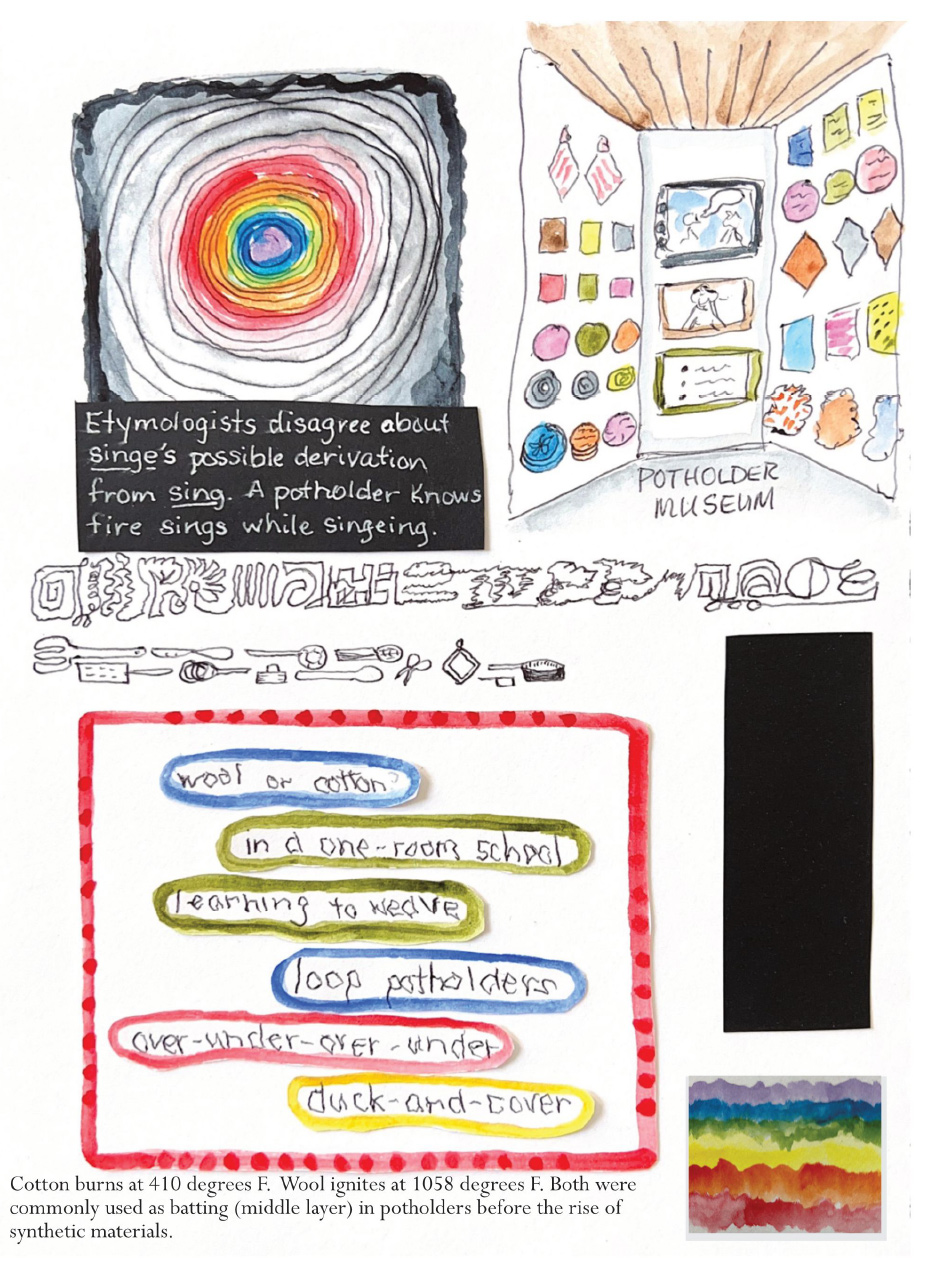 Etymologists disagree about
singe's possible derivation
from sing. A potholder knows
fire sings while singeing.
POTHOLDER
MUSEUM
wool or cotton?
in a one-room school
learning to weave
loop potholders
over-under-over-under
duck-and-cover
Cotton burns at 410 degrees F. Wool ignites at 1058 degrees F. Both were
commonly used as batting (middle layer) in potholders before the rise of
synthetic materials.